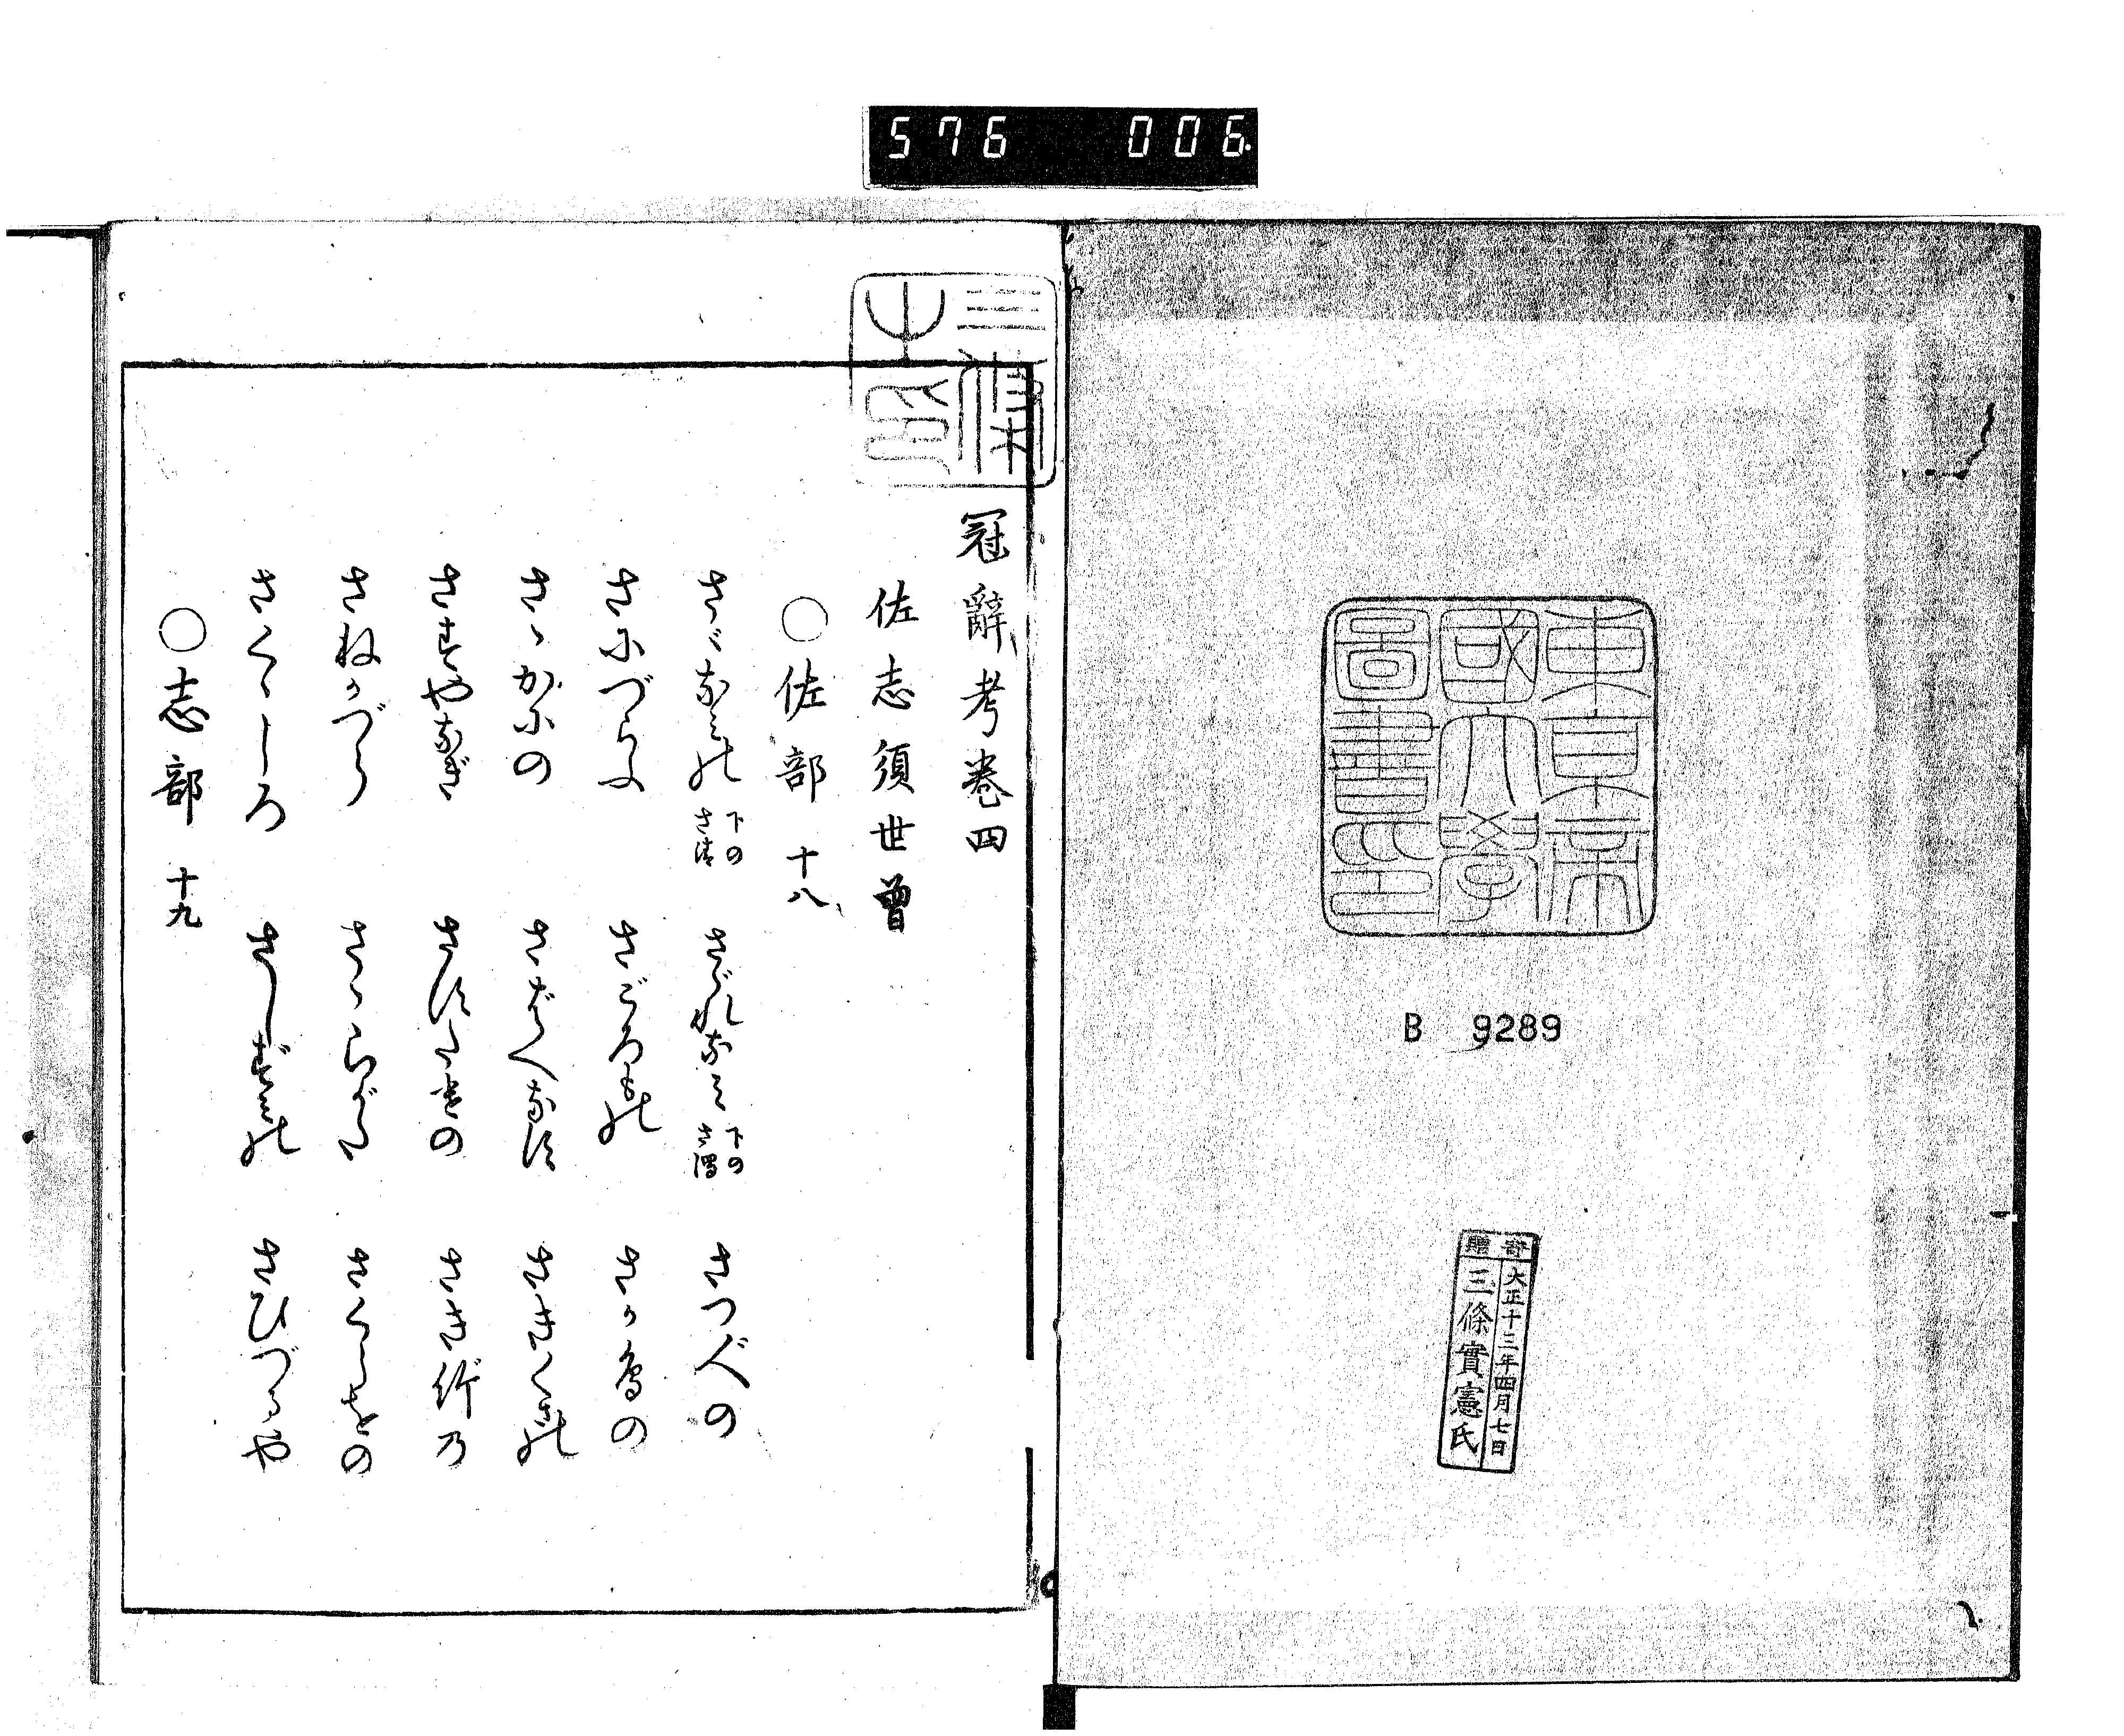 576 006.
東京帝
國大學
圖書印
B 9289
寄贈
大正十三年四月七日
三條實憲氏
三條
之印
冠辭考卷四
佐志須世曾
○佐部 十八
さゞなみの 下のさ清 さゞれなみ 下のさ濁 さつ人の
さにづらふ さごろもの さか鳥の
さゝがにの さばへなす さきくさの
さすやなぎ さす竹の
さねかづら さゝらがた さくらをの
さくゝしろ さしずみの さひづるや
○志部 十九